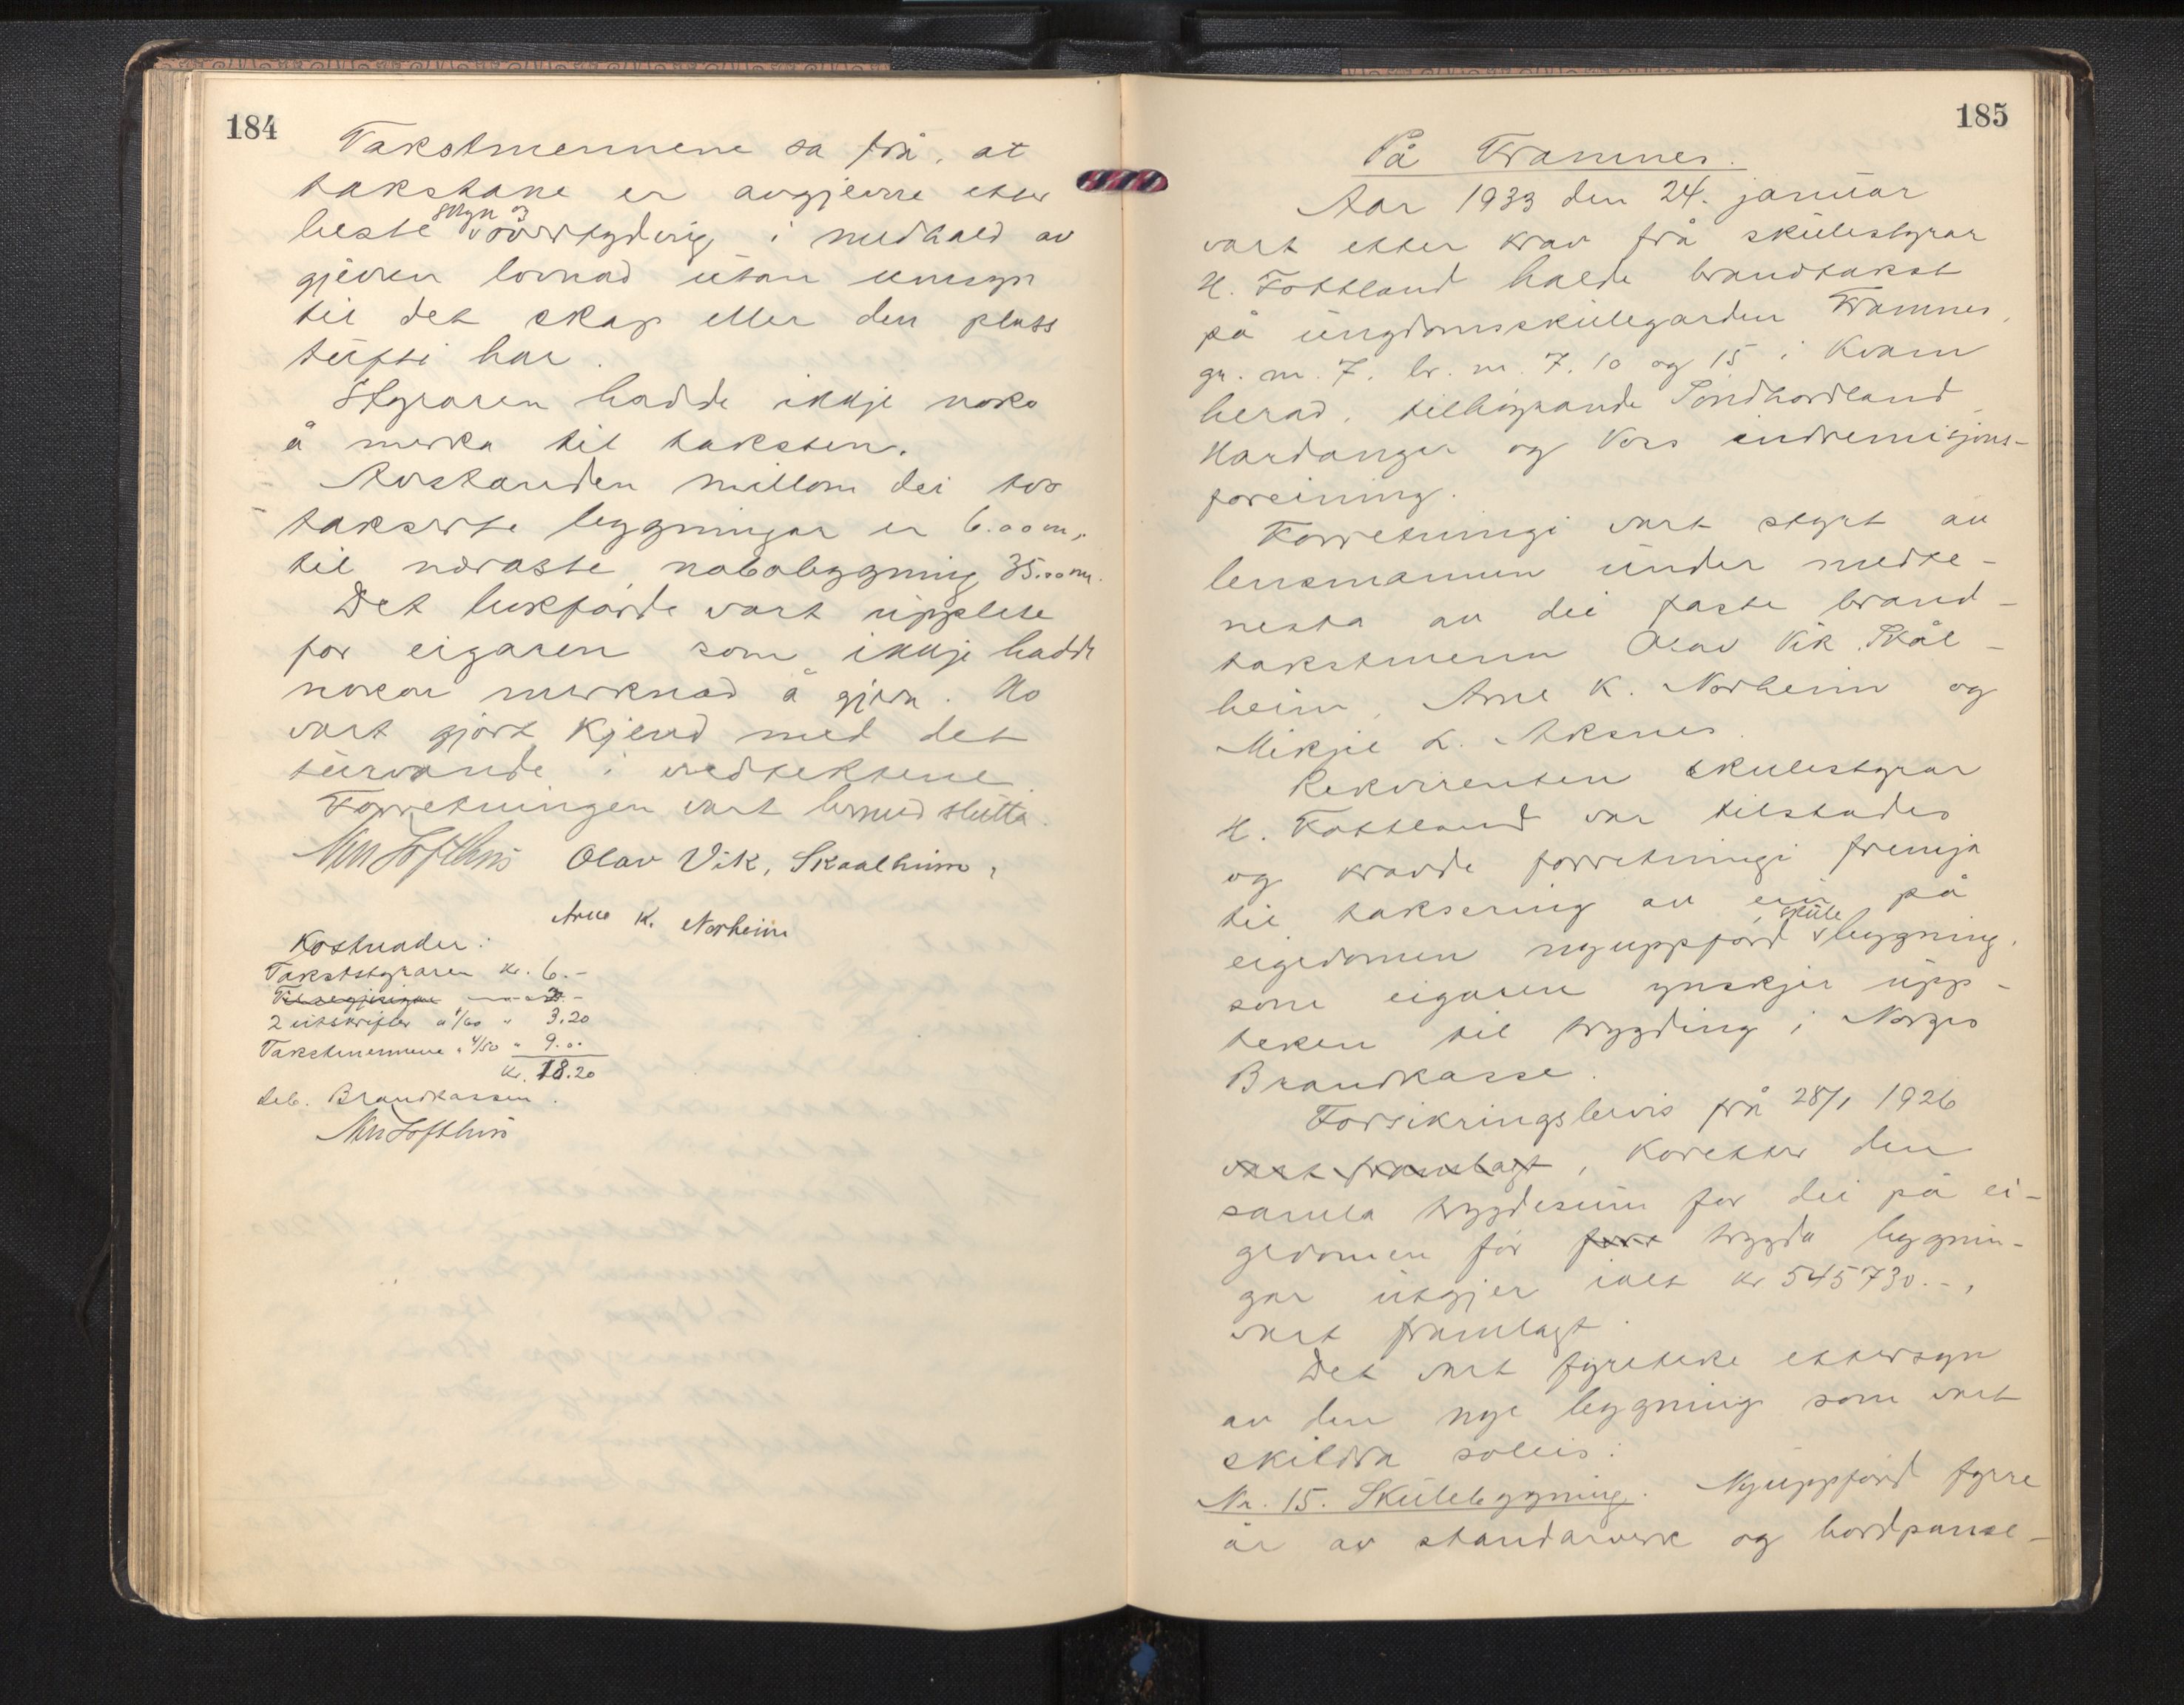 184
Takstmennene sa frå, at
takstane er avgjevne etter
beste skyn og overtyding i medhald av
gjeven lovnad utan umsyn
til det skap eller den plass
tufti har.
Styraren hadde ikkje noko
å merka til taksten.
Avstanden millom dei tvo
takserte bygningar er 6.00 m,
til næraste nabobygning 35.00 m.
Det bukførde vart upplese
for eigaren som ikkje hadde
nokon merknad å gjera. Ho
vart gjort kjend med det
turvande i vedtektene
Forretningen vart dermed slutta.
Olav Vik, Skaalheim,
Arne K. Norheim
Kostnader:
Takststyraren kr. 6.-
2 utskrifter a 1/60 " 3.20
Takstmennene a 4/50 " 9.00
Kr. 18.20
deb. Brandkassen.
185
På Framnes.
Aar 1933 den 24. januar
vart etter krav frå skulestyrar
H. Fottland halde brandtakst
på ungdomsskulegarden Framnes,
gr. nr. 7, br. nr. 7, 10 og 15 i Kvam
herad, tilhøyrande Sondhordland
Hardanger og Vors indremisjons-
foreining.
Forretningi vart styrt av
lensmannen under medte-
nesta av dei faste brand-
takstmenn Olav Vik Skål-
heim, Arne K. Norheim og
Mikjel L. Aksnes.
Rekvirenten skulestyrar
H. Fottland var tilstades
og kravde forretningi fremja
til taksering av ein på
eigedomen nyuppförd skule bygning,
som eigaren ynskjer upp-
teken til trygding i Norges
Brandkasse.
Forsikringsbevis frå 28/1 1926
vart framlagt, koretter den
samla trygdesum for dei på ei-
gedomen för före trygda bygnin-
gar utgjer ialt kr 545730.-,
vart framlagt.
Det vart fyreteke ettersyn
av den nye bygning som vart
skildra soleis:
Nr. 15. Skulebygning. Nyuppförd fyrre
år av standarverk og bordpanse-